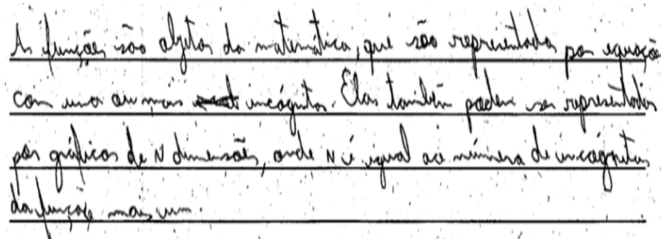 As funções são objetos da matemática, que são representados por equação
com uma ou mais incógnitas. Elas também podem ser representadas
por gráficos de N dimensões, onde N é igual ao número de incógnitas
da função mais um.